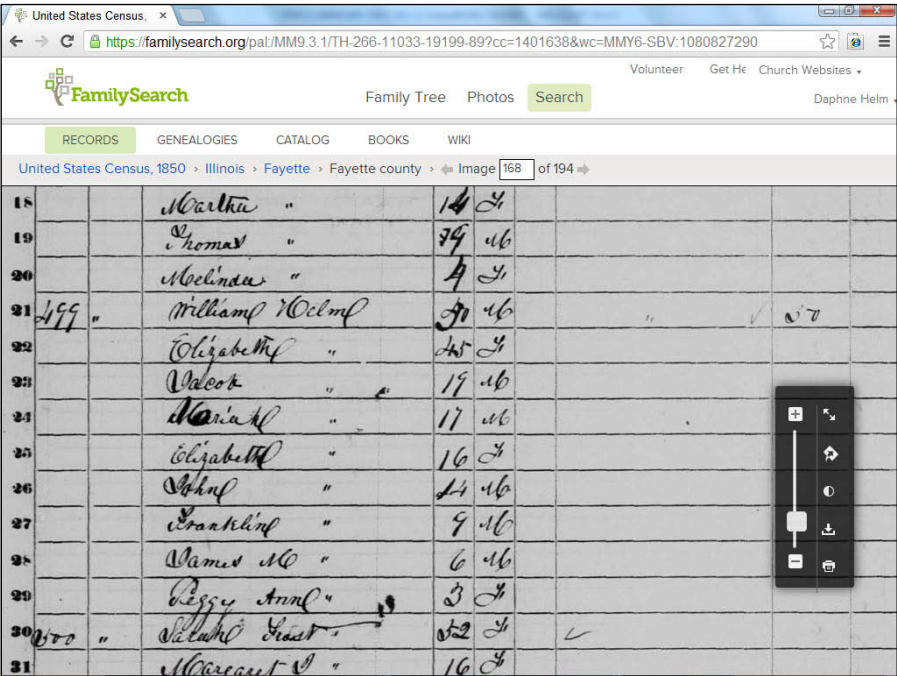 United States Census, ×
https://familysearch.org/pal:/MM9.3.1/TH-266-11033-19199-89?cc=1401638&wc=MMY6-SBV:1080827290
Volunteer Get He Church Websites
FamilySearch Family Tree Photos Search Daphne Helm
RECORDS GENEALOGIES CATALOG BOOKS WIKI
United States Census, 1850 › Illinois › Fayette › Fayette county › Image 168 of 194
18 Martha " 14 F
19 Thomas " M
20 Melinda " 4 F
21 499 " William Helm 50 M " 50
22 Elizabeth " 45 F
23 Jacob " " 19 M
24 Mariah " 17 M
25 Elizabeth " 16 F
26 John " 14 M
27 Franklin " 9 M
28 James M " 6 M
29 Peggy Ann " 3 F
30 500 " Sarah " 52 F
31 Margaret " 16 F